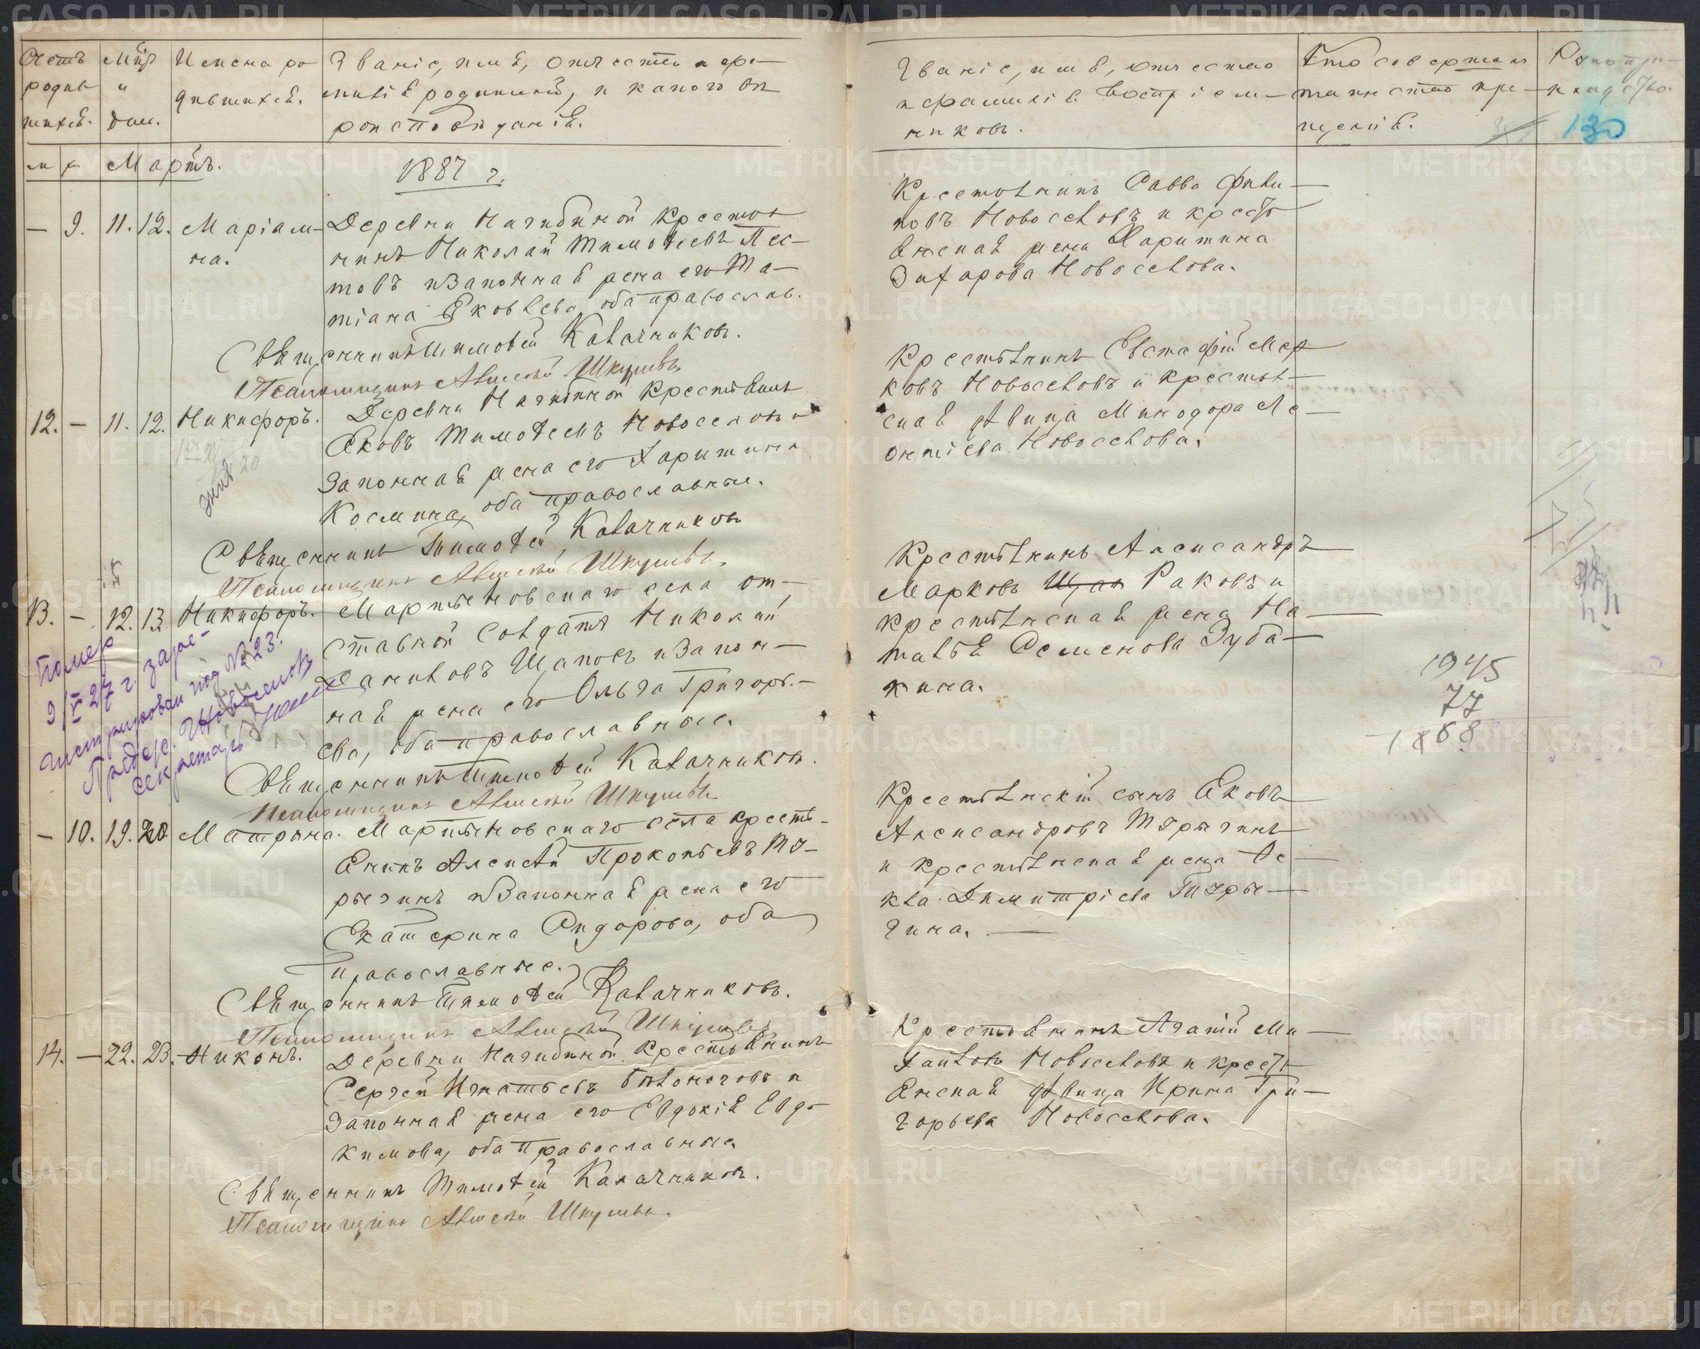 Счетъ родив-шихся.
Мѣс. и день.
Имена ро-
дившихся.
Званіе, имя, отчество и фа-
милія родителей, и какого вѣ-
роисповѣданія.
Званіе, имя, отчество
и фамилія воспріем-
никовъ.
Кто совершалъ
таинство кре-
щенія.
Рукопри-
кладство.
130
м. ж. Мартъ.
1887 г.
— 9. 11. 12. Маріам-
на.
Деревни Нагибиной крестья-
нинъ Николай Тимоѳеевъ Пес-
товъ и законная жена его Та-
тіана Яковлева, оба православ.
Священникъ Тимоѳей Калачниковъ.
Псаломщикъ Алексѣй Шкулевъ
Крестьянинъ Савва Фили-
повъ Новоселовъ и кресть-
янская жена Харитина
Захарова Новоселова.
12. — 11. 12. Никифоръ.
Деревни Нагибиной крестьянинъ
Яковъ Тимоѳеевъ Новоселовъ и
законная жена его Харитина
Косьмина, оба православные.
Священникъ Тимоѳей Калачниковъ
Псаломщикъ Алексѣй Шкулевъ.
Крестьянинъ Евстафій Мар-
ковъ Новоселовъ и крестьян-
ская дѣвица Минодора Ле-
онтіева Новоселова.
13. — 12. 13. Никифоръ.
Мартыновскаго села от-
ставной солдатъ Николай
Даниловъ Щаповъ и закон-
ная жена его Ольга Григорь-
ева, оба православные.
Священникъ Тимоѳей Калачниковъ.
Псаломщикъ Алексѣй Шкулевъ
Помер
9/V 27 г. заре-
гистрирован под № 23.
Предс. Новоселов
Секретарь
Крестьянинъ Александръ
Марковъ Раковъ и
крестьянская жена На-
талья Семенова Зуба-
кина.
1945
77
1868
— 10. 19. 20. Матрона.
Мартыновскаго села кресть-
янинъ Алексѣй Прокопьевъ Те-
рыгинъ и законная жена его
Екатерина Сидорова, оба
православные.
Священникъ Тимоѳей Калачниковъ.
Псаломщикъ Алексѣй Шкулевъ
Крестьянскій сынъ Яковъ
Александровъ
и крестьянская жена Ѳе-
кла Димитріева
14. — 22. 23. Никонъ.
Деревни Нагибиной крестьянинъ
Сергѣй Игнатьевъ Бѣлоноговъ и
законная жена его Евдокія Евдо-
кимова, оба православные.
Священникъ Тимоѳей Калачниковъ.
Псаломщикъ Алексѣй Шкулевъ.
Крестьянинъ Агапій Ми-
хайловъ Новоселовъ и кресть-
янская дѣвица Ирина Гри-
горьева Новоселова.
METRIKI.GASO-URAL.RU